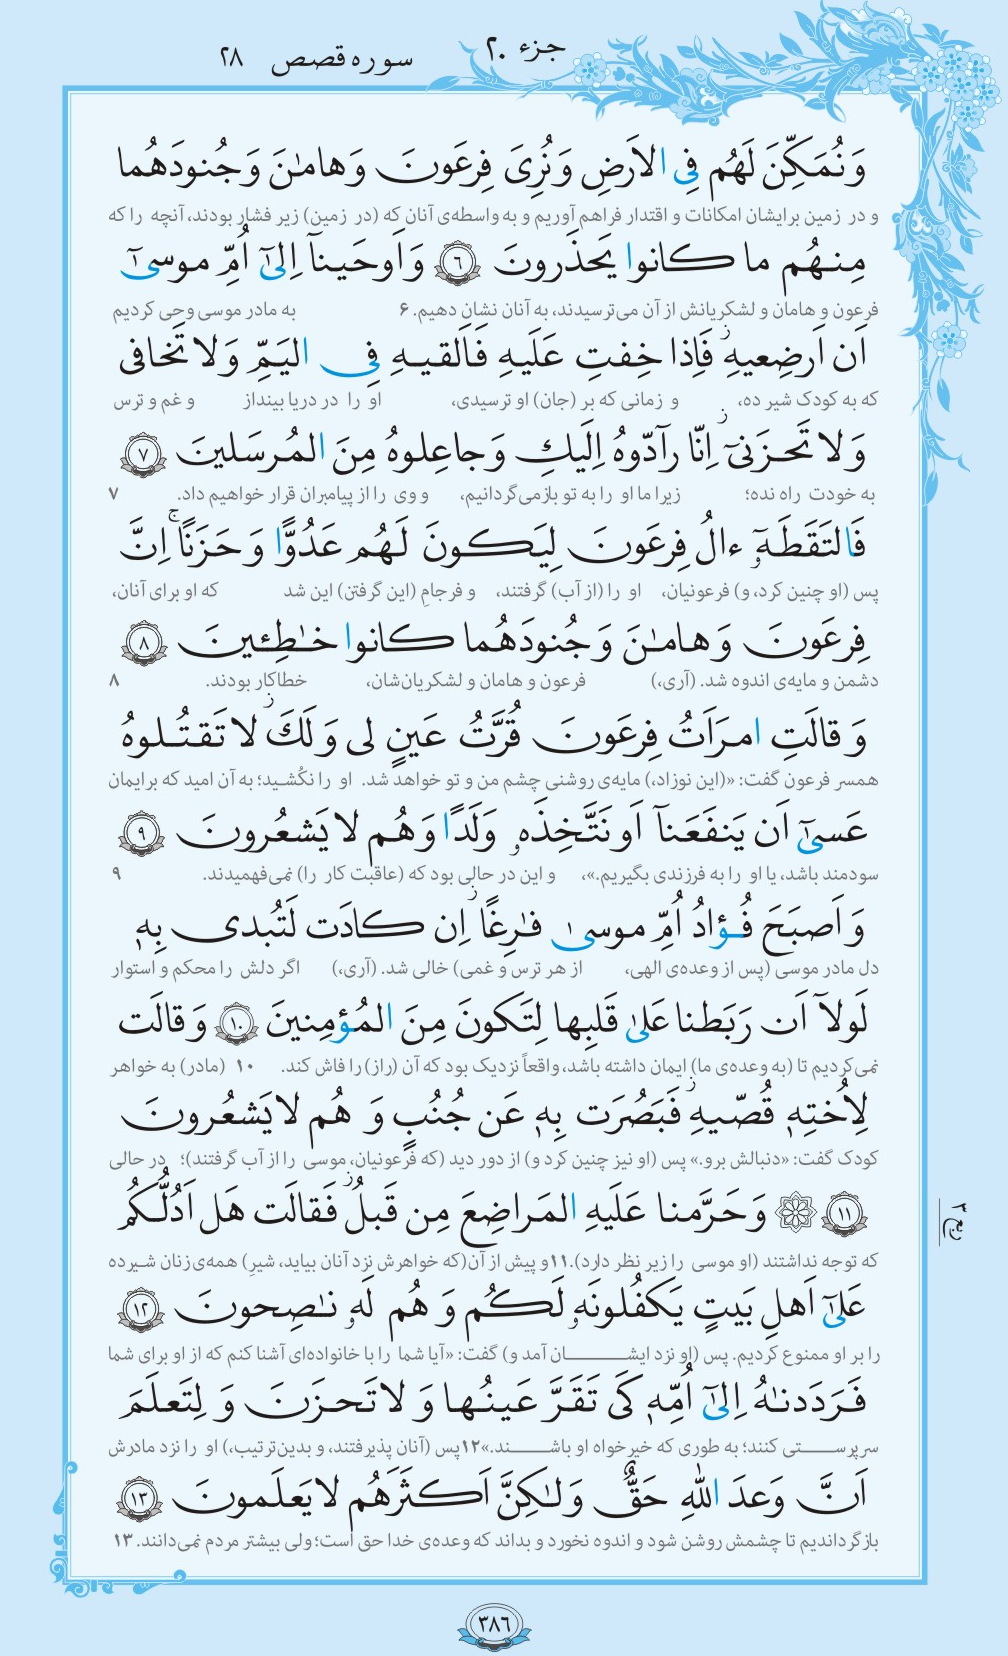 جزء ۲۰
سوره قصص ۲۸
وَ نُمَكِّنَ لَهُم فِی الاَرضِ وَ نُرِیَ فِرعَونَ وَ هامٰنَ وَ جُنودَهُما
و در زمین برایشان امکانات و اقتدار فراهم آوریم و به واسطه‌ی آنان که (در زمین) زیر فشار بودند، آنچه را که
مِنهُم ما كانوا یَحذَرونَ ﴿۶﴾ وَ اَوحَینآ اِلیٰٓ اُمِّ موسیٰٓ
فرعون و هامان و لشکریانش از آن می‌ترسیدند، به آنان نشان دهیم. ۶ به مادر موسی وحی کردیم
اَن اَرضِعیهِ ز فَاِذا خِفتِ عَلَیهِ فَاَلقیهِ فِی الیَمِّ وَ لا تَخافی
که به کودک شیر ده، و زمانی که بر (جان) او ترسیدی، او را در دریا بینداز و غم و ترس
وَ لا تَحزَنیٓ ز اِنّا رآدّوهُ اِلَیكِ وَ جاعِلوهُ مِنَ المُرسَلینَ ﴿۷﴾
به خودت راه نده؛ زیرا ما او را به تو بازمی‌گردانیم، و وی را از پیامبران قرار خواهیم داد. ۷
فَالتَقَطَهٓۥ ءالُ فِرعَونَ لِیَكونَ لَهُم عَدُوًّا وَ حَزَنًا ۚ اِنَّ
پس (او چنین کرد، و) فرعونیان، او را (از آب) گرفتند، و فرجامِ (این گرفتن) این شد که او برای آنان،
فِرعَونَ وَ هامٰنَ وَ جُنودَهُما كانوا خٰطِـٔینَ ﴿۸﴾
دشمن و مایه‌ی اندوه شد. (آری،) فرعون و هامان و لشکریان‌شان، خطاکار بودند. ۸
وَ قالَتِ امرَاَتُ فِرعَونَ قُرَّتُ عَینٍ لی وَ لَكَ ز لا تَقتُلوهُ
همسر فرعون گفت: «(این نوزاد،) مایه‌ی روشنی چشم من و تو خواهد شد. او را نکُشید؛ به آن امید که برایمان
عَسیٰٓ اَن یَنفَعَنآ اَو نَتَّخِذَهۥ وَلَدًا وَ هُم لا یَشعُرونَ ﴿۹﴾
سودمند باشد، یا او را به فرزندی بگیریم.»، و این در حالی بود که (عاقبت کار را) نمی‌فهمیدند. ۹
وَ اَصبَحَ فُؤادُ اُمِّ موسیٰ فٰرِغًا ز اِن كادَت لَتُبدی بِهٖ
دل مادر موسی (پس از وعده‌ی الهی، از هر ترس و غمی) خالی شد. (آری،) اگر دلش را محکم و استوار
لَولآ اَن رَبَطنا عَلیٰ قَلبِها لِتَكونَ مِنَ المُؤمِنینَ ﴿۱۰﴾ وَ قالَت
نمی‌کردیم تا (به وعده‌ی ما) ایمان داشته باشد، واقعاً نزدیک بود که آن (راز) را فاش کند. ۱۰ (مادر) به خواهر
لِاُختِهٖ قُصّیهِ ز فَبَصُرَت بِهٖ عَن جُنُبٍ وَ هُم لا یَشعُرونَ
کودک گفت: «دنبالش برو.» پس (او نیز چنین کرد و) از دور دید (که فرعونیان، موسی را از آب گرفتند)؛ در حالی
﴿۱۱﴾ وَ حَرَّمنا عَلَیهِ المَراضِعَ مِن قَبلُ ز فَقالَت هَل اَدُلُّكُم
که توجه نداشتند (او موسی را زیر نظر دارد).۱۱ و پیش از آن (که خواهرش نزد آنان بیاید، شیرِ) همه‌ی زنان شیرده
ربع ۳
عَلیٰٓ اَهلِ بَیتٍ یَكفُلونَهۥ لَكُم وَ هُم لَهۥ نٰصِحونَ ﴿۱۲﴾
را بر او ممنوع کردیم. پس (او نزد ایشان آمد و) گفت: «آیا شما را با خانواده‌ای آشنا کنم که از او برای شما
فَرَدَدنٰهُ اِلیٰٓ اُمِّهٖ كَی تَقَرَّ عَینُها وَ لا تَحزَنَ وَ لِتَعلَمَ
سرپرستی کنند؛ به طوری که خیرخواه او باشند.»۱۲ پس (آنان پذیرفتند، و بدین‌ترتیب،) او را نزد مادرش
اَنَّ وَعدَ اللهِ حَقٌّ وَ لٰكِنَّ اَكثَرَهُم لا یَعلَمونَ ﴿۱۳﴾
بازگرداندیم تا چشمش روشن شود و اندوه نخورد و بداند که وعده‌ی خدا حق است؛ ولی بیشتر مردم نمی‌دانند. ۱۳
۳۸۶